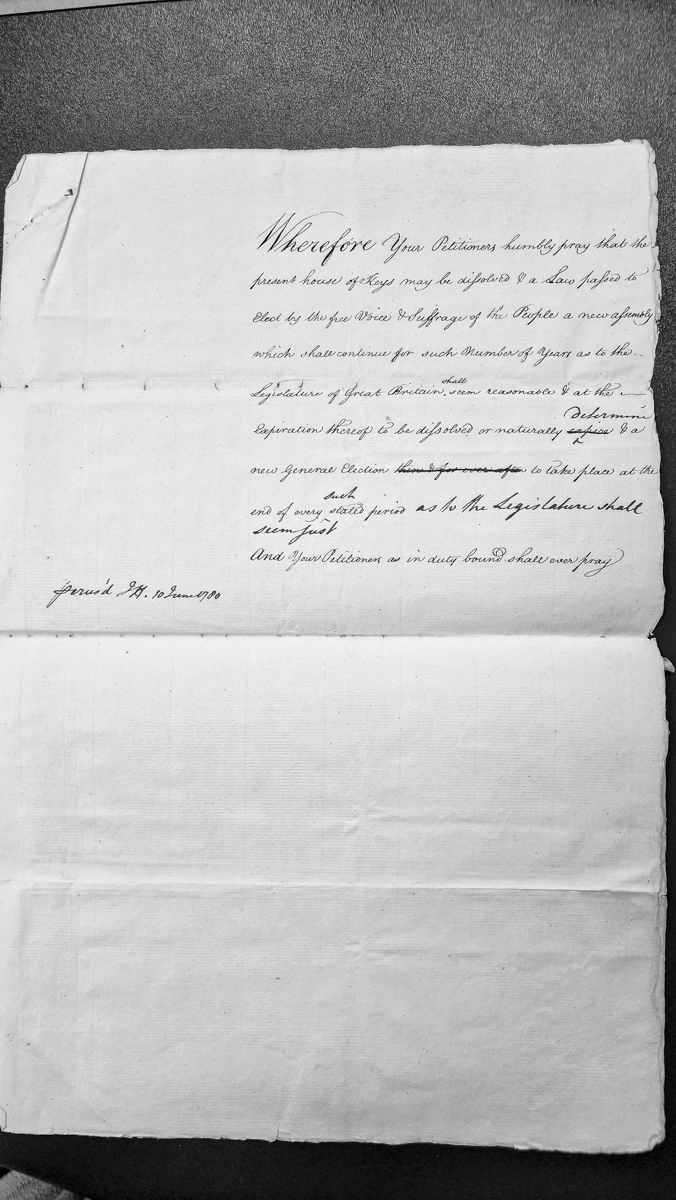 Wherefore Your Petitioners humbly pray that the
present house of Keys may be dissolved & a Law passed to
Elect by the free Voice & Suffrage of the People a new assembly
which shall continue for such Number of Years as to the
shall
Legislature of Great Britain seem reasonable & at the
determine
Expiration thereof to be dissolved or naturally expire & a
new General Election then & for ever after to take place at the
such
end of every stated period as to the Legislature shall
seem just
And Your Petitioners as in duty bound shall ever pray
perus'd J H. 10 June 1780